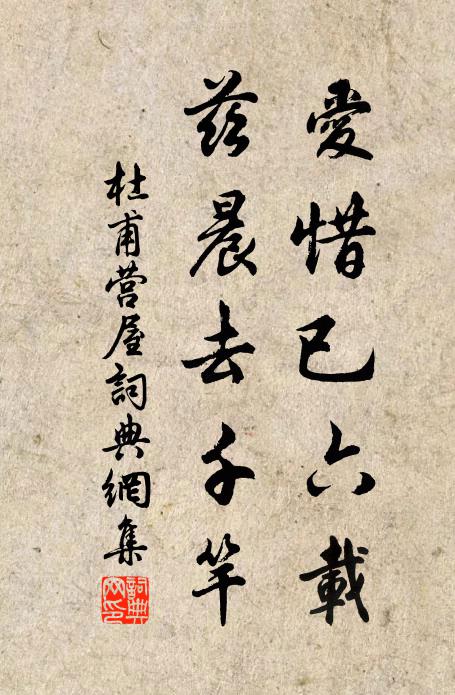 愛惜已六載
茲晨去千竿
杜甫營屋詞典網集
詞典网印